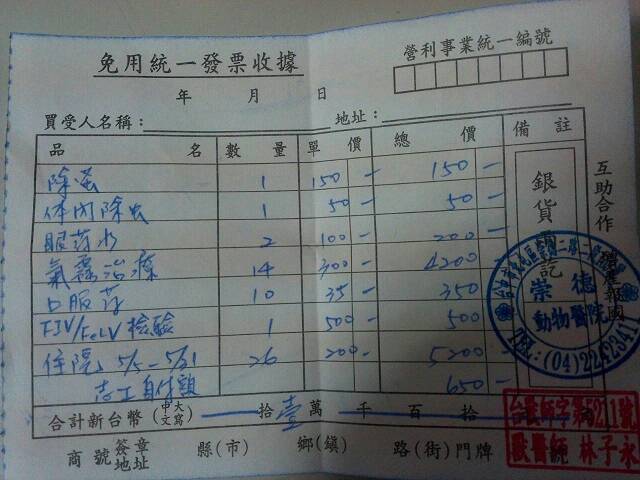 免用統一發票收據
營利事業統一編號
年 月 日
買受人名稱： 地址：
品 名 數 量 單 價 總 價 備 註
除蚤 1 150 - 150 -
体內除虫 1 50 - 50 -
眼药水 2 100 - 200 -
氣霧治療 14 300 - 4200 -
口服药 10 35 - 350 -
FIV/FeLV 檢驗 1 500 - 500 -
住院 5/5-5/31 26 200 - 5200 -
志工自付額 650 -
銀貨 訖
互助合作
崇德
動物醫院
TEL:(04)2242341
合計新台幣(中文大寫) 拾 壹 萬 千 百 拾
商號 簽章 地址 縣(市) 鄉(鎮) 路(街)門牌
獸醫師 林子永